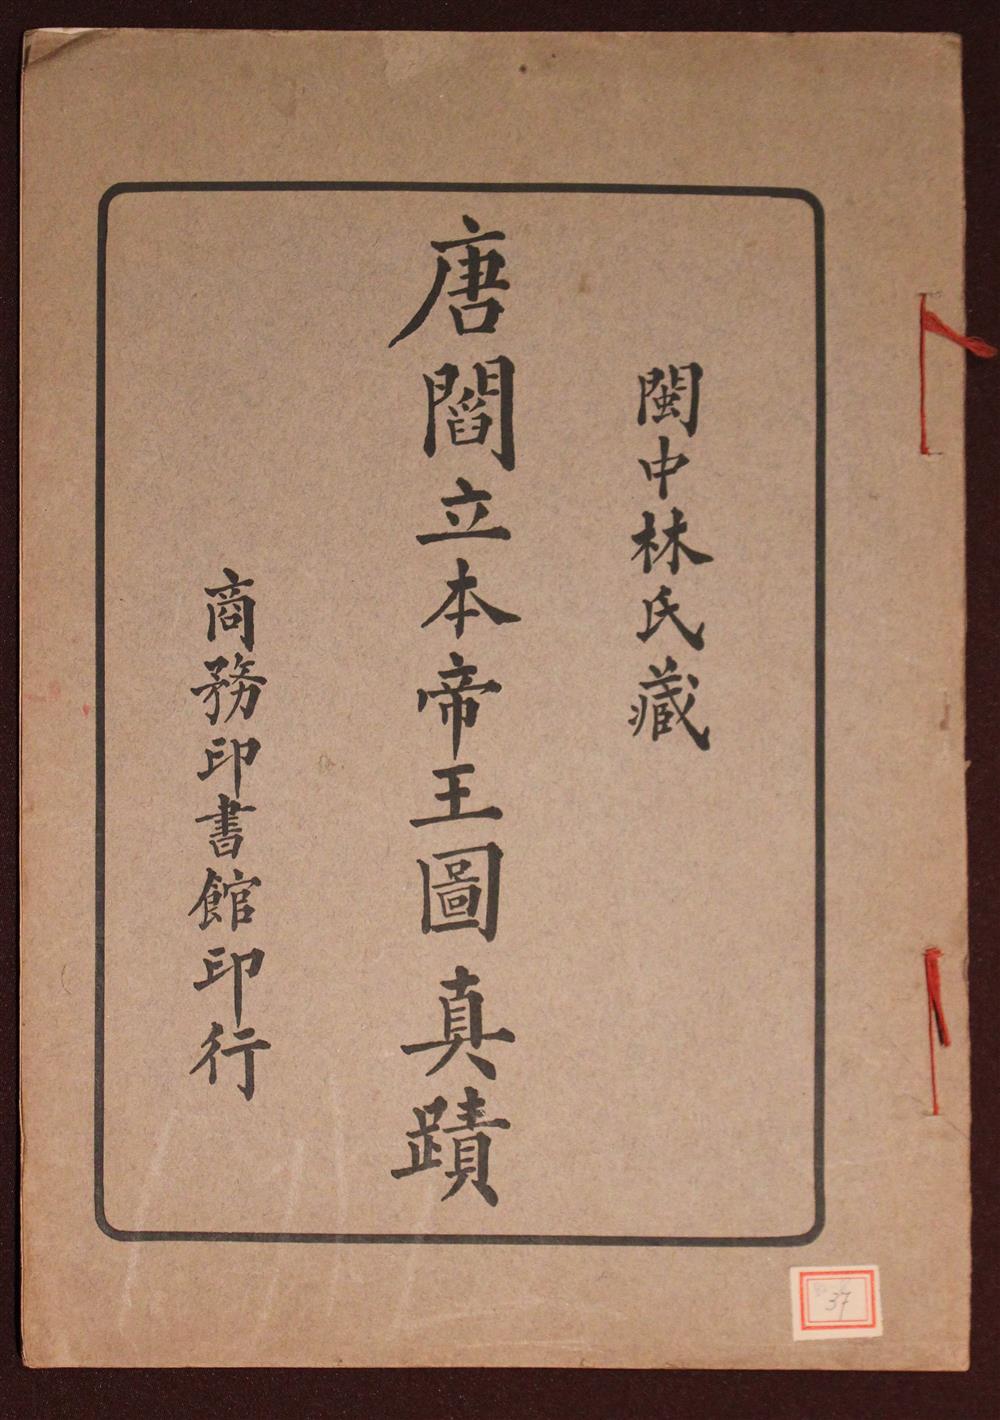 閩中林氏藏
唐閻立本帝王圖真蹟
商務印書館印行
37